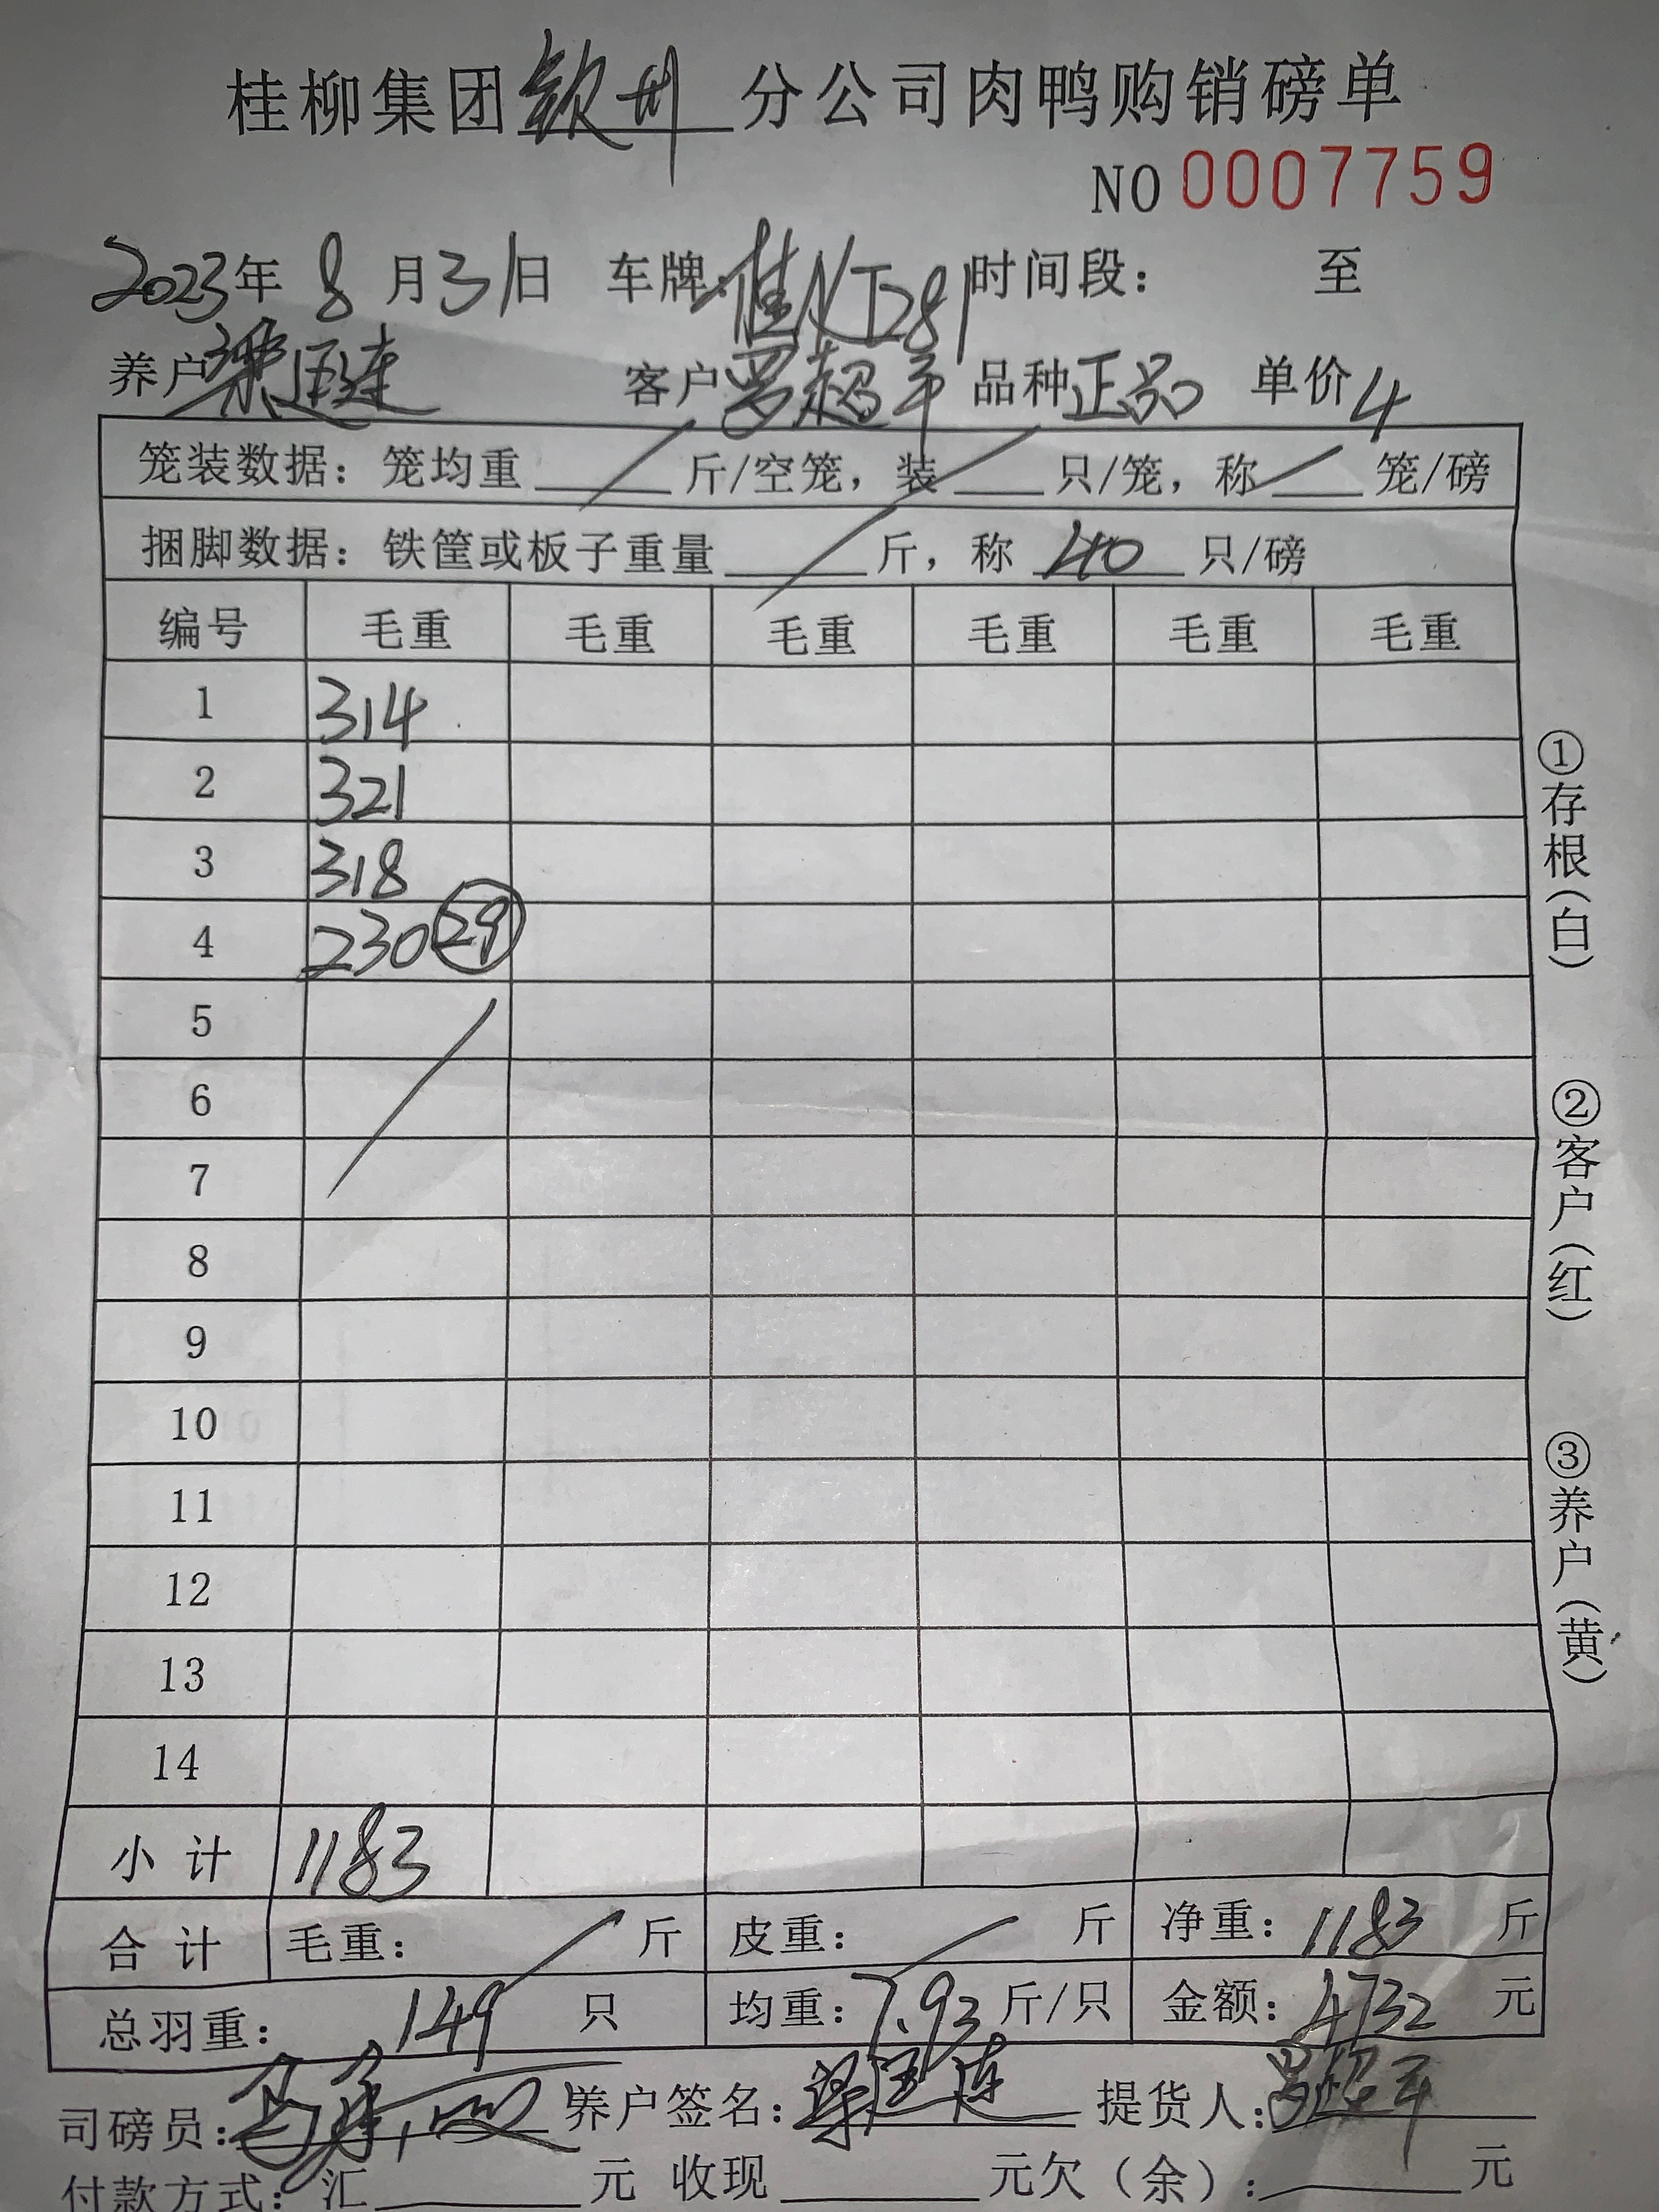 桂柳集团钦州分公司肉鸭购销磅单
NO 0007759
2023年 8 月 31日 车牌:桂NT281 时间段: 至
养户 客户罗超平 品种正品 单价4
笼装数据:笼均重____斤/空笼,装___只/笼,称___笼/磅
捆脚数据:铁筐或板子重量____斤,称 40 只/磅
编号 毛重 毛重 毛重 毛重 毛重 毛重
1 314
2 321
3 318
4 230 29
5
6
7
8
9
10
11
12
13
14
小计 1183
合计 毛重: 斤 皮重: 斤 净重:1183 斤
总羽重: 149 只 均重:7.93 斤/只 金额:4732 元
司磅员: 养户签名: 提货人:罗超平
付款方式:汇____元 收现____元欠(余):____元
①存根(白)
②客户(红)
③养户(黄)